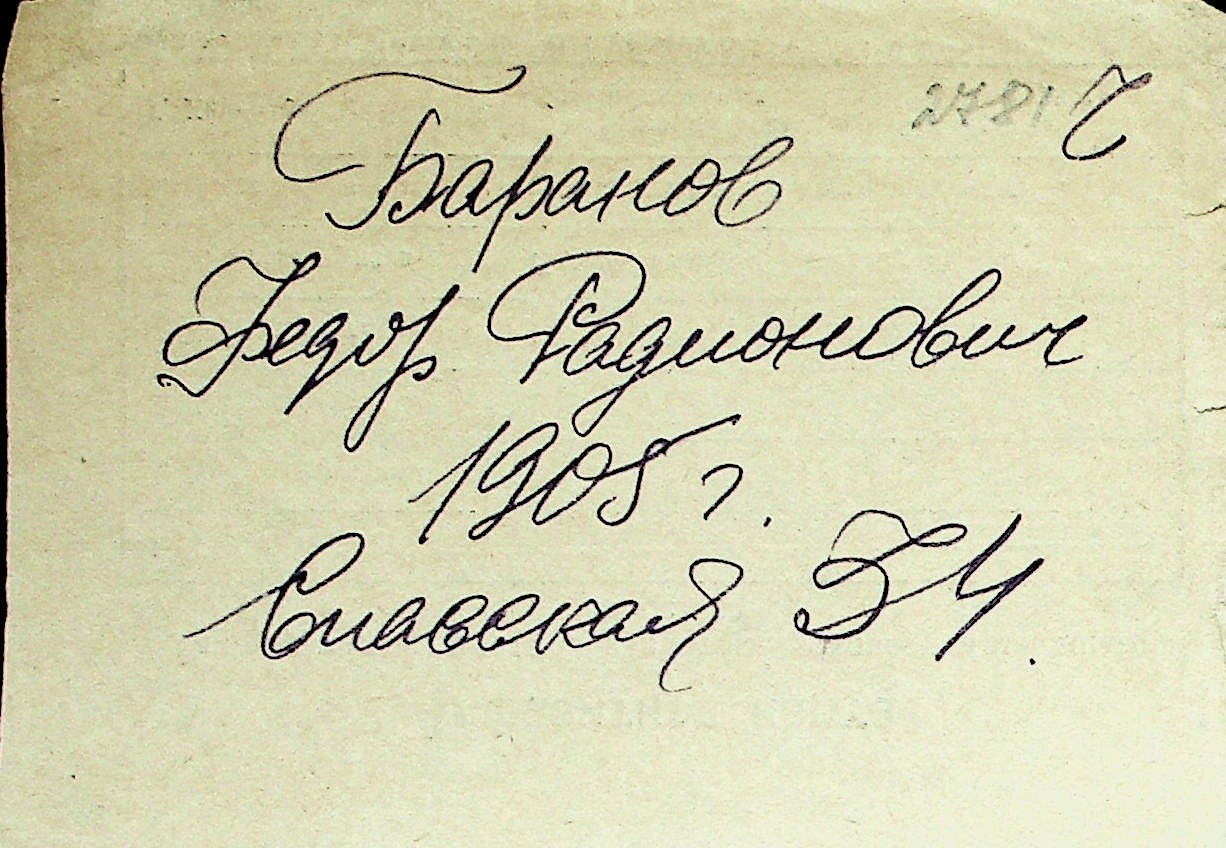 2781 г
Баранов
Федор Радионович
1905 г.
Спасская 54.